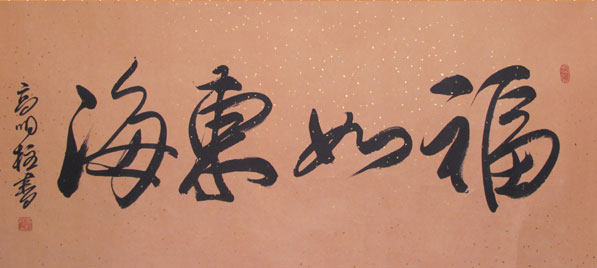 福如東海
高明柱書